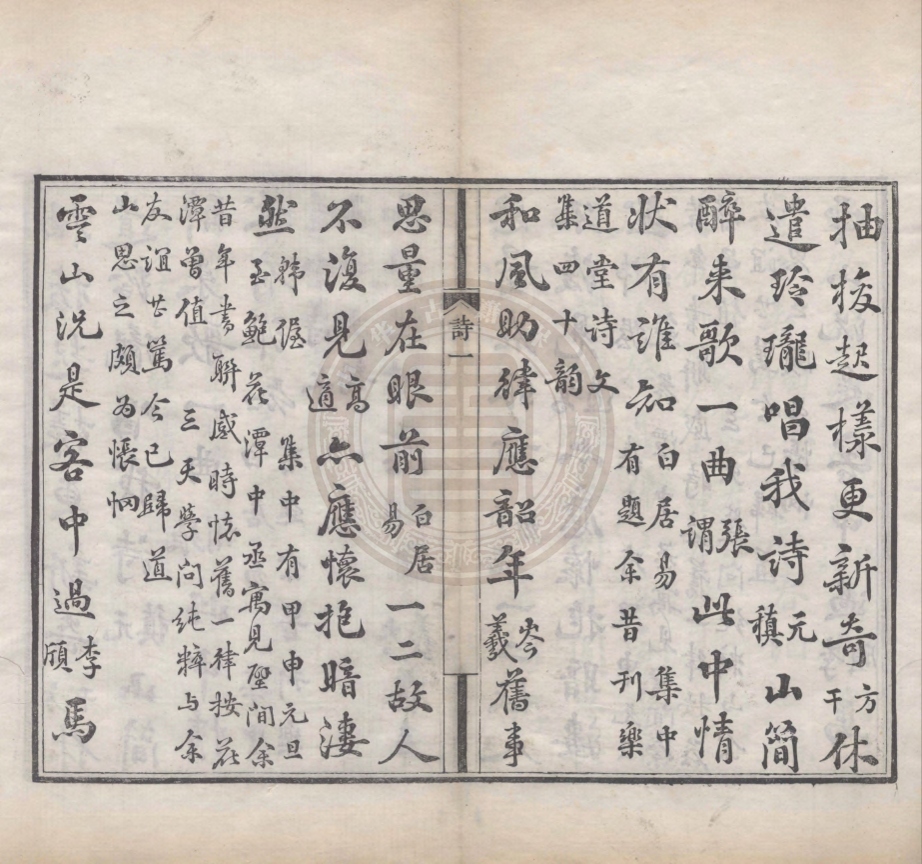 抽梭起樣更新奇方干休
遣玲瓏唱我詩元稹山簡
醉来歌一曲張謂此中情
狀有誰知白居易集中有題余昔刊樂
道堂詩文集四十韻
和風助律應韶年岑羲舊事
詩一
思量在眼前白居易一二故人
不復見高適亦應懷抱暗凄
然韓偓集中有甲申元旦至鮑花潭中丞寓見壁間余
昔年書聯感時懷舊一律按花潭曾值三天學問純粹与余
友誼甚篤今已歸道山思之頗为悵惘
雲山况是客中過李頎馬